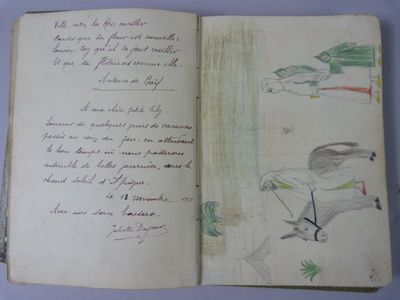 Fille, voy la Rose meillir
Tandis que la fleur est nouvelle:
Souvien toy qu'il te faut vieillir
Et que tu flétriras comme elle.
Antoine de Baïf
A ma chère petite
Souvenir de quelques jours de vacances
passés au coin du feu, en attendant
le bon temps où nous passerons
ensemble de belles journées, sous le
chaud soleil d'Afrique.
Le 12 novembre
Avec mes doux baisers.
Juliette